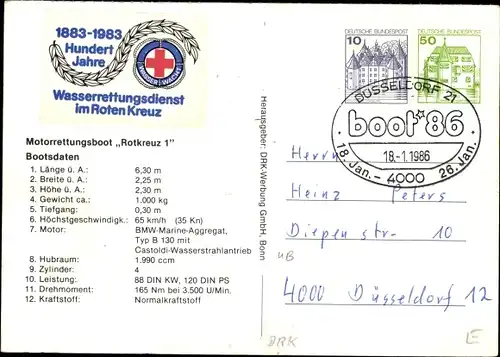 1883-1983
Hundert
Jahre
WASSERWACHT
Wasserrettungsdienst
im Roten Kreuz
Motorrettungsboot „Rotkreuz 1"
Bootsdaten
1. Länge ü. A.: 6,30 m
2. Breite ü. A.: 2,25 m
3. Höhe ü. A.: 2,30 m
4. Gewicht ca.: 1.000 kg
5. Tiefgang: 0,30 m
6. Höchstgeschwindigk.: 65 km/h (35 Kn)
7. Motor: BMW-Marine-Aggregat,
Typ B 130 mit
Castoldi-Wasserstrahlantrieb
8. Hubraum: 1.990 ccm
9. Zylinder: 4
10. Leistung: 88 DIN KW, 120 DIN PS
11. Drehmoment: 165 Nm bei 3.500 U/Min.
12. Kraftstoff: Normalkraftstoff
Herausgeber: DRK-Werbung GmbH, Bonn
DEUTSCHE BUNDESPOST
10
DEUTSCHE BUNDESPOST
50
DÜSSELDORF 21
boot '86
18.-1.1986
18. Jan. - 4000 - 26. Jan.
Herrn
Heinz Peters
Diepenstr. 10
4000 Düsseldorf 12
DRK
E